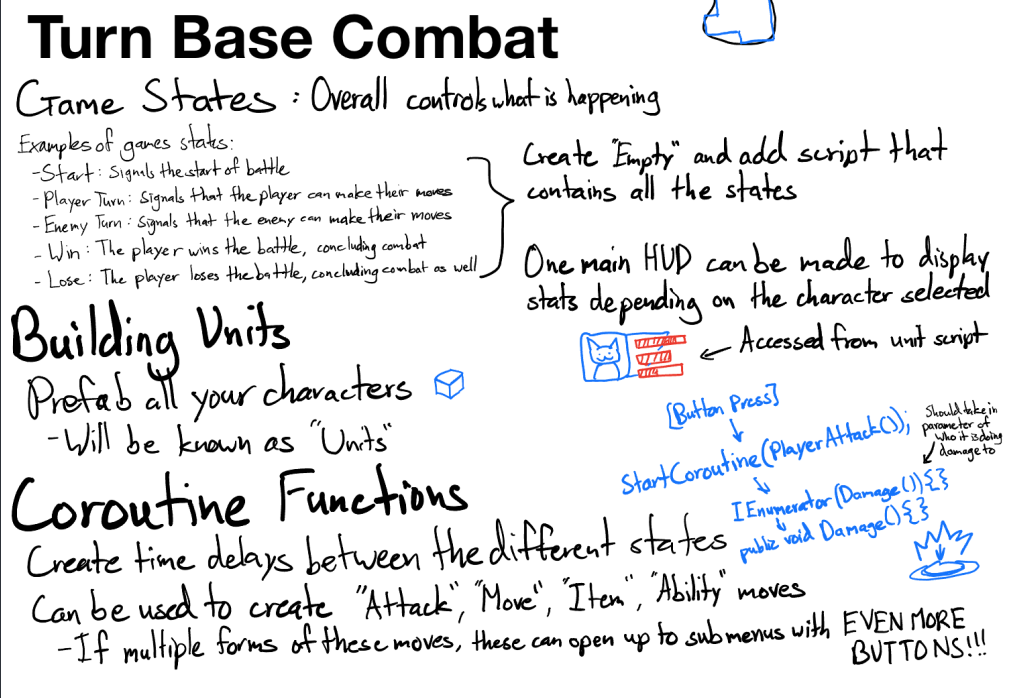 Turn Base Combat
Game States : Overall controls what is happening
Examples of games states:
- Start: Signals the start of battle
- Player Turn: Signals that the player can make their moves
- Enemy Turn: Signals that the enemy can make their moves
- Win: The player wins the battle, concluding combat
- Lose: The player loses the battle, concluding combat as well
Create "Empty" and add script that
contains all the states
One main HUD can be made to display
stats depending on the character selected
Accessed from unit script
Building Units
Prefab all your characters
- Will be known as "Units"
[Button Press]
StartCoroutine(PlayerAttack());
IEnumerator(Damage()){}
public void Damage(){}
Should take in
parameter of
who it is doing
damage to
Coroutine Functions
Create time delays between the different states
Can be used to create "Attack", "Move", "Item", "Ability" moves
- If multiple forms of these moves, these can open up to submenus with EVEN MORE
BUTTONS!!!